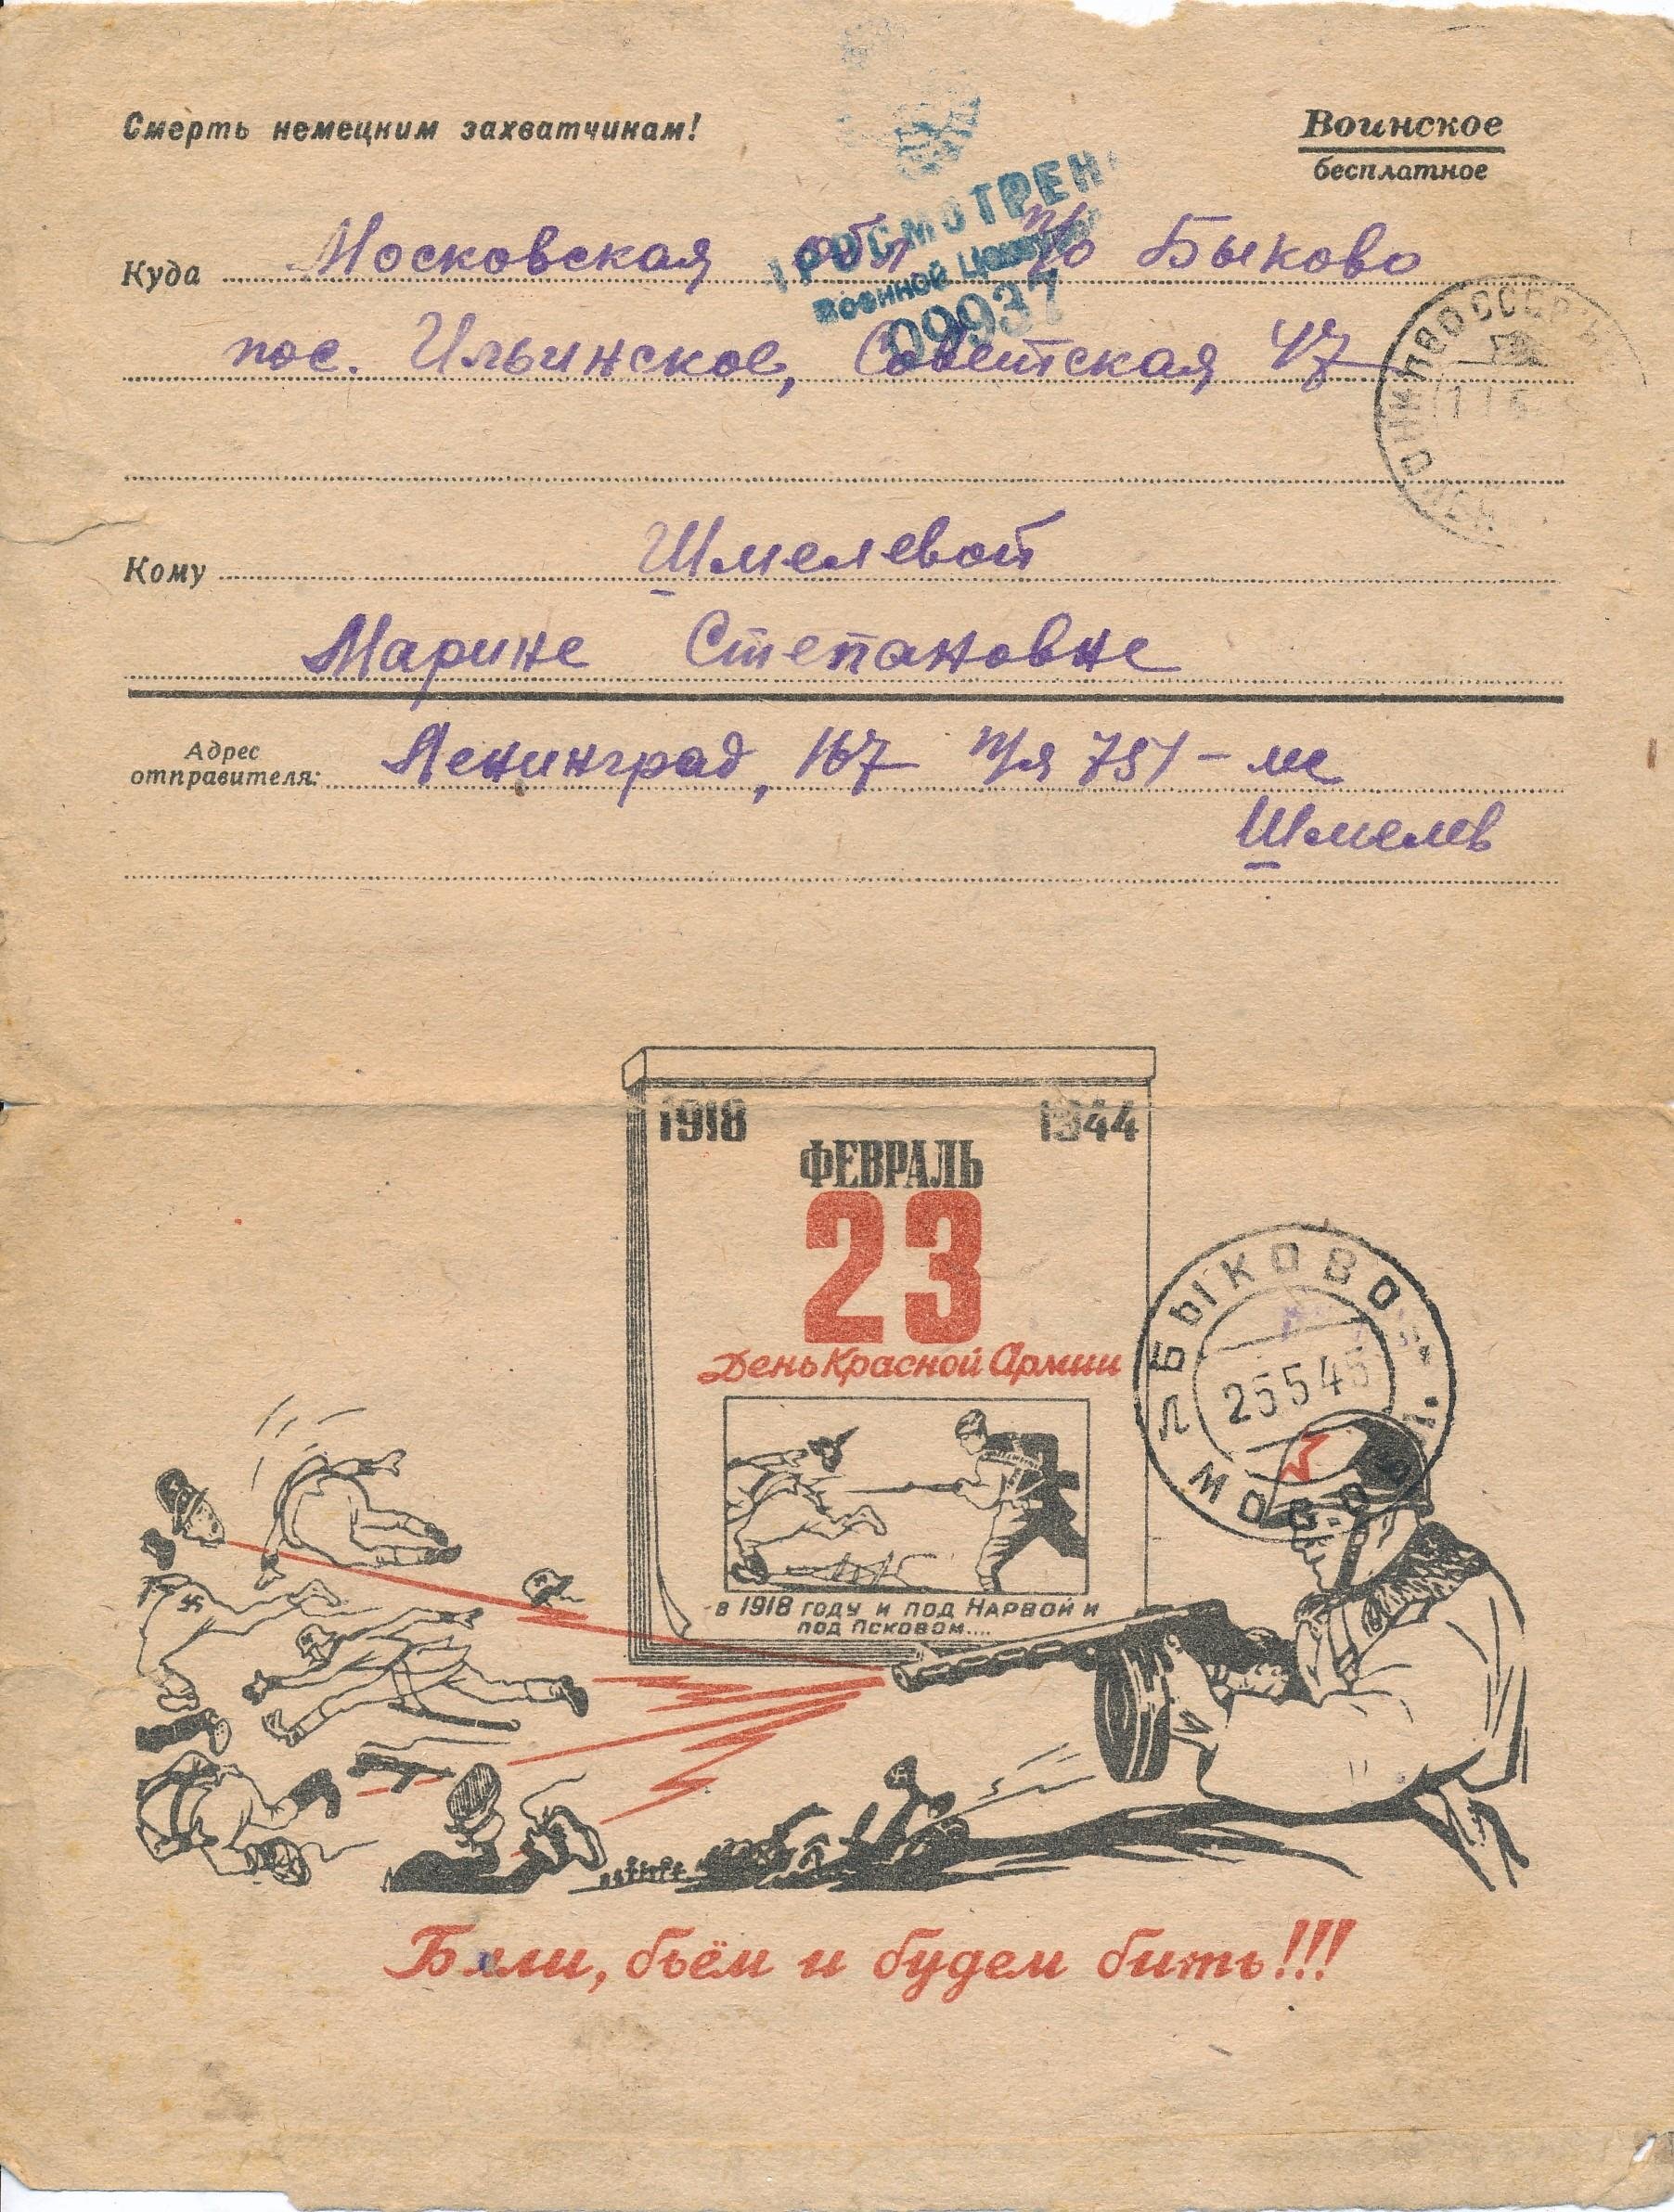 Смерть немецким захватчикам!
Воинское
бесплатное
ПРОСМОТРЕНО
Военной Цензурой
09937
Куда Московская обл п/о Быково
пос. Ильинское, Советская 47
Кому Шмелевой
Марине Степановне
Адрес
отправителя: Ленинград, 167 п/я 751-м
Шмелев
1918 1944
ФЕВРАЛЬ
23
День Красной Армии
БЫКОВО
25 5 45
МОСК.
в 1918 году и под Нарвой и
под Псковом....
Били, бьём и будем бить!!!